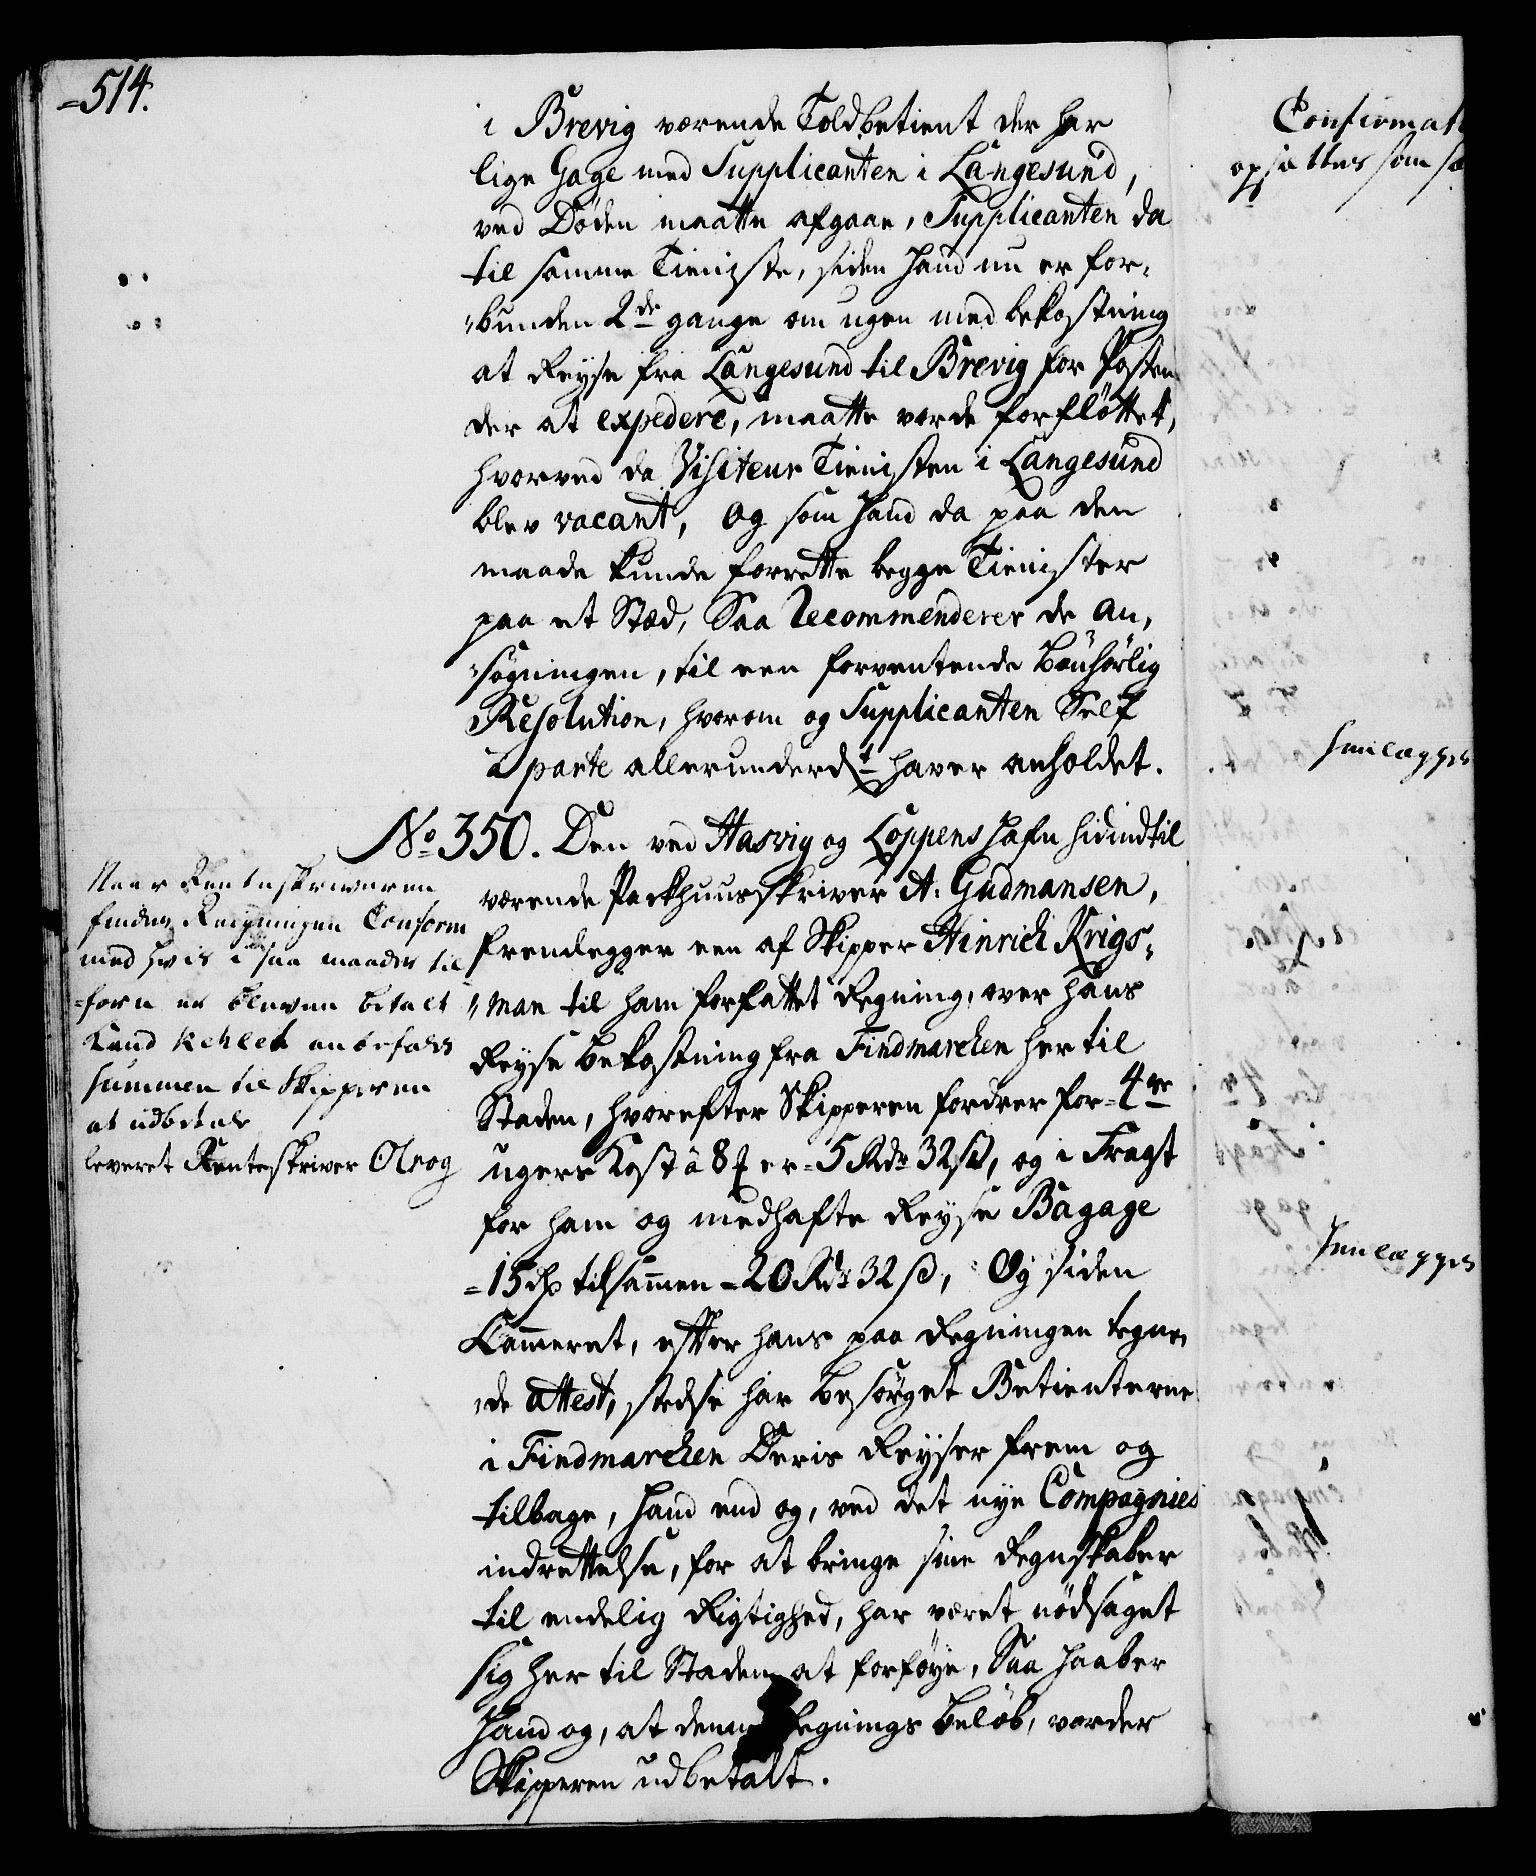 =514.
i Brevig værende Toldbetient der har
lige Gage med Supplicanten i Langesund,
ved Døden maatte afgaae, Supplicanten da
til samme Tieniste, siden hand nu er for„
„bunden 2de gange om ugen med bekostning
at Reyse fra Langesund til Brevig for Posten
der at expedere, maatte vorde forfløttet,
hvorved da Visiteur Tienisten i Langesund
blev vacant, og som hand da paa den
maade kunde forrette begge Tienister
paa et Stæd, Saa Recommenderer de An„
„søgningen, til een forventende bønhørlig
Resolution, hvorom og Supplicanten Self
à parte allerunderdt haver anholdet.
No 350. Den ved Hasvig og Loppens Hafn hidindtil
værende Packhuusskriver A: Gudmansen,
fremlegger een af Skipper Hinrich Krigs„
„man til ham forfattet Regning, over hans
Reyse bekostning fra Findmarchen her til
Staden, hvorefter Skipperen fordrer for 4re
ugers Kost à 8 er = 5 Rdr 32 ß, og i Fragt
for ham og medhafte Reyse Bagage
= 15 tilsammen = 20 Rdr 32 ß, Og siden
Cammeret, efter hans paa Regningen tegne„
„de Attest, stedse har besørget Betienterne
i Findmarchen Deris Reyser frem og
tilbage, hand end og, ved det nye Compagnies
indrettelse, for at bringe sine Regnskaber
til endelig Rigtighed, har været nødsaget
sig her til Staden at forføye, Saa haaber
Hand og, at denne Regnings beløb, vorder
Skipperen udbetalt.
Naar Renteskriveren
finder Regningen Conform
med hvis i saa maader til
=forn er bleven betalt
Kand anbefales
Summen til Skipperen
at udbetale
leveret Renteskriver Olrog
Confirmat
opsættes som
Indlægges
Indlægges